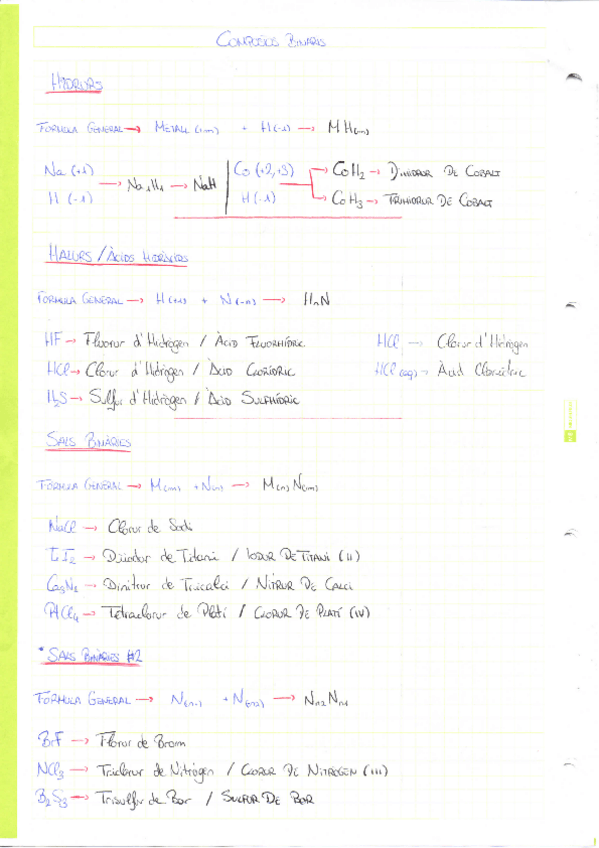 COMPOSTOS BINARIS
HIDRURS
FÓRMULA GENERAL → METALL (+m) + H(-1) → MH(m)
Na (+1)
H (-1)
→ Na1H1 → NaH
Co (+2,+3)
H (-1)
→ CoH2 → DIHIDRUR DE COBALT
→ CoH3 → TRIHIDRUR DE COBALT
HALURS / ÀCIDS HIDRÀCIDS
FÓRMULA GENERAL → H(+1) + N(-n) → HnN
HF → Fluorur d'Hidrògen / ÀCID FLUORHÍDRIC
HCl → Clorur d'Hidrògen
HCl → Clorur d'Hidrògen / ÀCID CLORÍDRIC
HCl (aq) → Àcid Clorhídric
H2S → Sulfur d'Hidrògen / ÀCID SULFHÍDRIC
SALS BINÀRIES
FÓRMULA GENERAL → M(+m) + N(-n) → M(n)N(m)
NaCl → Clorur de Sodi
TiI2 → Diiodur de Titani / IODUR DE TITANI (II)
Ca3N2 → Dinitrur de Tricalci / NITRUR DE CALCI
PtCl4 → Tetraclorur de Platí / CLORUR DE PLATÍ (IV)
* SALS BINÀRIES #2
FÓRMULA GENERAL → N(n1) + N(n2) → Nn2Nn1
BrF → Florur de Brom
NCl3 → Triclorur de Nitrògen / CLORUR DE NITROGEN (III)
B2S3 → Trisulfur de Bor / SULFUR DE BOR